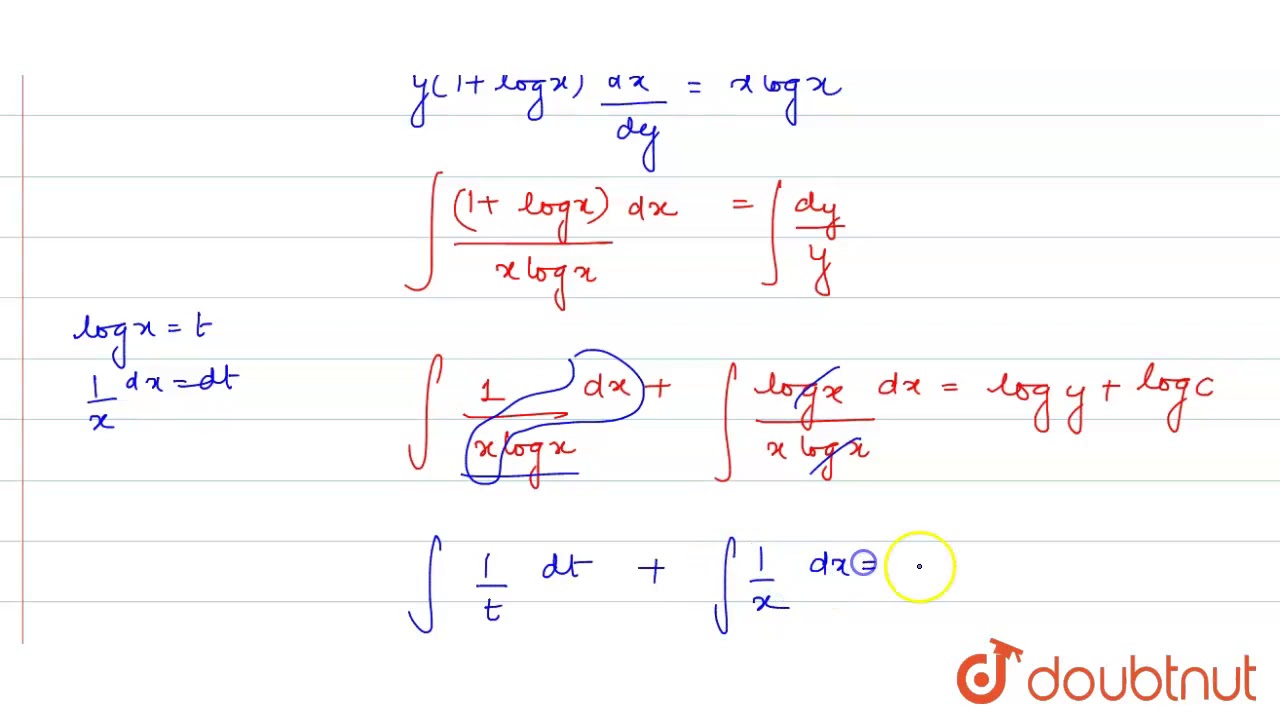 y(1+ logx) dx/dy = x logx
∫ (1+ logx)/(x logx) dx = ∫ dy/y
logx = t
1/x dx = dt
∫ 1/(x logx) dx + ∫ logx/(x logx) dx = log y + log c
∫ 1/t dt + ∫ 1/x dx =
doubtnut